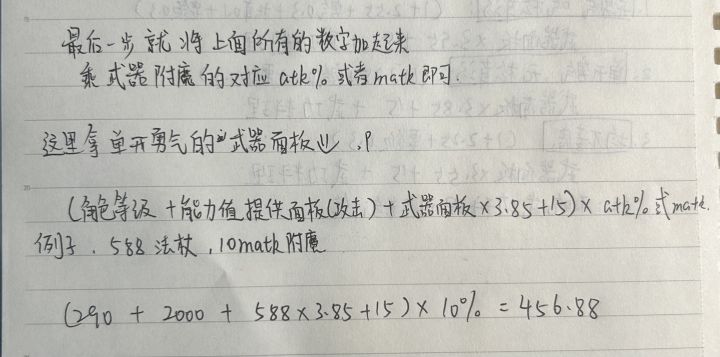 最后一步就将上面所有的数字加起来
乘武器附魔的对应atk%或者matk即可.
这里拿单开勇气的武器面板
(角色等级+能力值提供面板(攻击)+武器面板×3.85+15)×atk%或matk.
例子.588法杖,10matk附魔
(290+2000+588×3.85+15)×10%=456.88